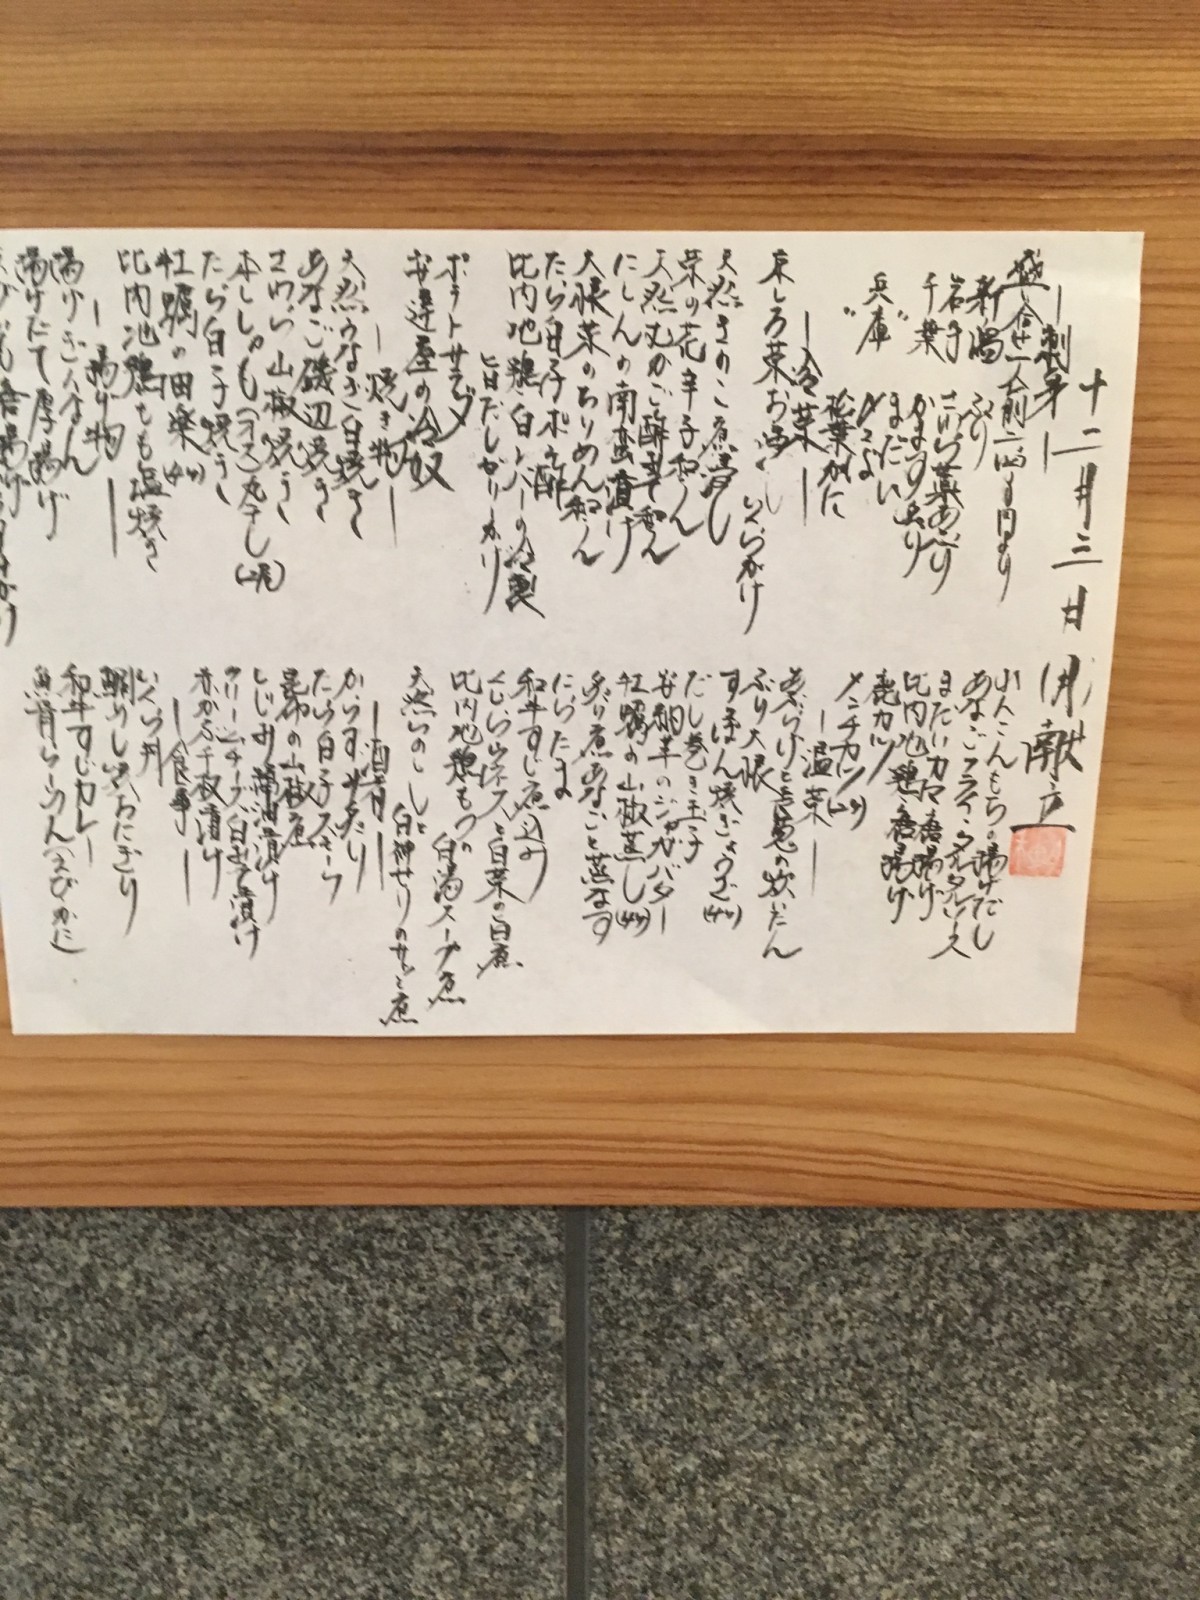 十二月三日 御献立
刺身
盛り合せ 一人前 二
新潟 ぶり
岩手 さわら藁あぶり
千葉 かます炙り
〃 まだい
兵庫 〆さば
〃 松葉がに
冷菜
いくらがけ
天然きのこ煮浸し
菜の花辛子和え
天然むかご酢辛子和え
にしんの南蛮漬け
大根菜のちりめん和え
たら白子ポン酢
比内地鶏白レバーの冷製
旨だしがりがり
ポテトサラダ
安達屋の冷奴
焼き物
天然うなぎ白焼き
あなご磯辺焼き
さわら山椒焼き
本ししゃも(オス)丸干し(二尾)
たら白子焼き
牡蠣の田楽(4ヶ)
比内地鶏もも塩焼き
揚げ物
揚げぎんなん
揚げたて厚揚げ
れんこんもちの揚げだし
あなごフライ タルタルソース
まだいカマ唐揚げ
比内地鶏唐揚げ
鹿カツ
メンチカツ(2ヶ)
温菜
ぶり大根
すっぽん焼ぎょうざ(4ヶ)
だし巻き玉子
安納芋のジャガバター
牡蠣の山椒蒸し(4ヶ)
炙り煮あなごと蒸なす
にらたま
和牛すじ煮込み
と白菜の白煮
比内地鶏もつの白湯スープ煮
天然いのししと
白神せりのサッと煮
酒肴
からすみ
たら白子スモーク
昆布の山椒煮
しじみ醤油漬け
クリームチーズ白みそ漬け
赤かぶ千枚漬け
食事
いくら丼
鯛めし
和牛すじカレー
魚骨らーめん(えびかに)